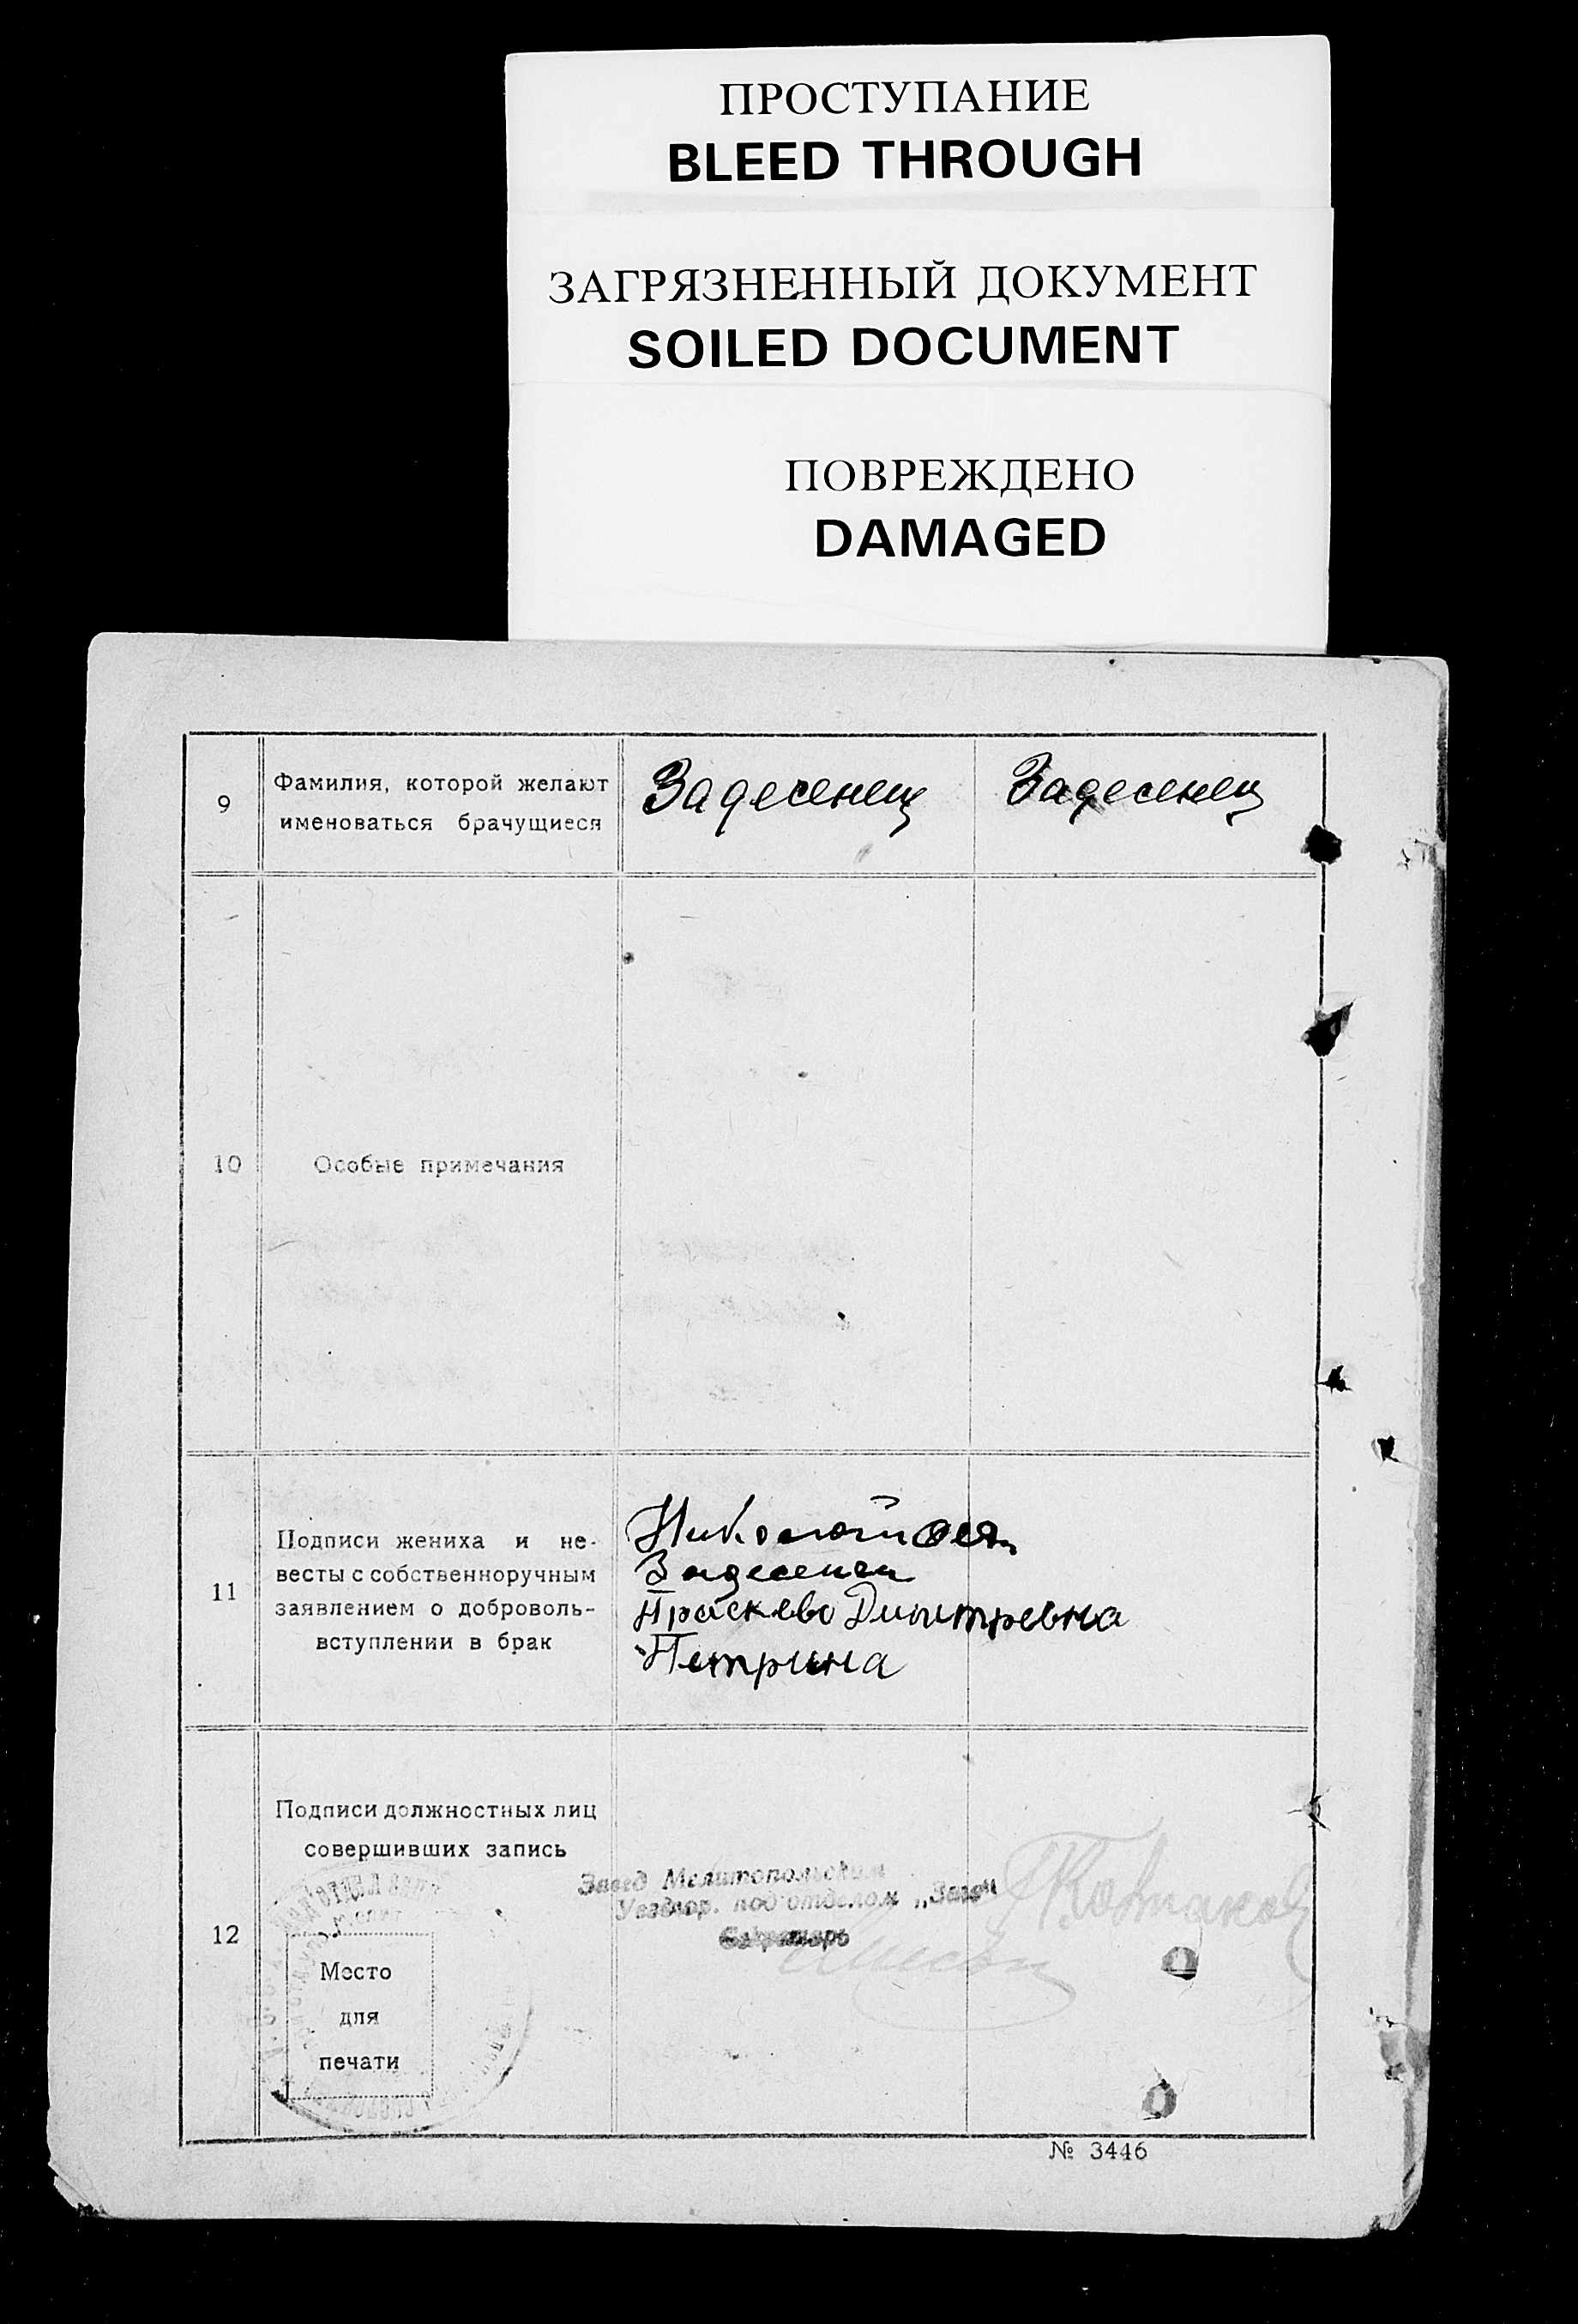 ПРОСТУПАНИЕ
BLEED THROUGH
ЗАГРЯЗНЕННЫЙ ДОКУМЕНТ
SOILED DOCUMENT
ПОВРЕЖДЕНО
DAMAGED
9
Фамилия, которой желают
именоваться брачущиеся
Задесенец
Задесенец
10
Особые примечания
11
Подписи жениха и не-
весты с собственноручным
заявлением о доброволь-
вступлении в брак
Задесенец
Праскева Дмитревна
Петрина
12
Подписи должностных лиц
совершивших запись
Место
для
печати
Завед Мелитопольским
под'отделом „Загс"
Секретарь
№ 3446